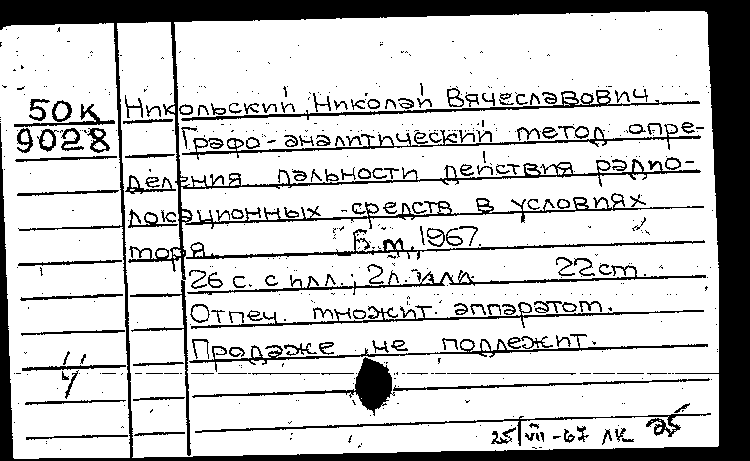 50к
9028
Никольский, Николай Вячеславович.
Графо-аналитический метод опре-
деления дальности действия радио-
локационных средств в условиях
моря. Б.м., 1967.
26 с. с илл.; 2л. илл. 22 см.
Отпеч. множит. аппаратом.
Продаже не подлежит.
4
25/VII-67 ЛК 25